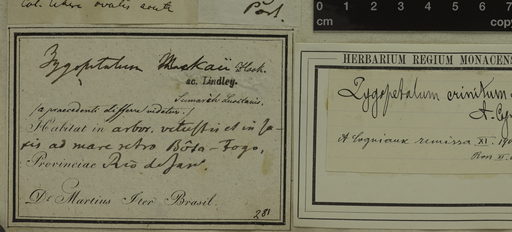 Col. labere ovalis acute
Port.
0 1 2 3 4 5 6 7 8
cm
copy
Zygopetalum Mackaii Hook.
ac. Lindley.
Sumaresh Lusitanis.
(a praecedenti differre videtur:)
Habitat in arbor. vetustis et in sa-
xis ad mare retro Bôta-fogo,
Provinciae Rio de Jan.
Dr Martius Iter Brasil.
281
HERBARIUM REGIUM MONACENS
Zygopetalum crinitum
A. Cogniaux remissa. XI. 190
Ros